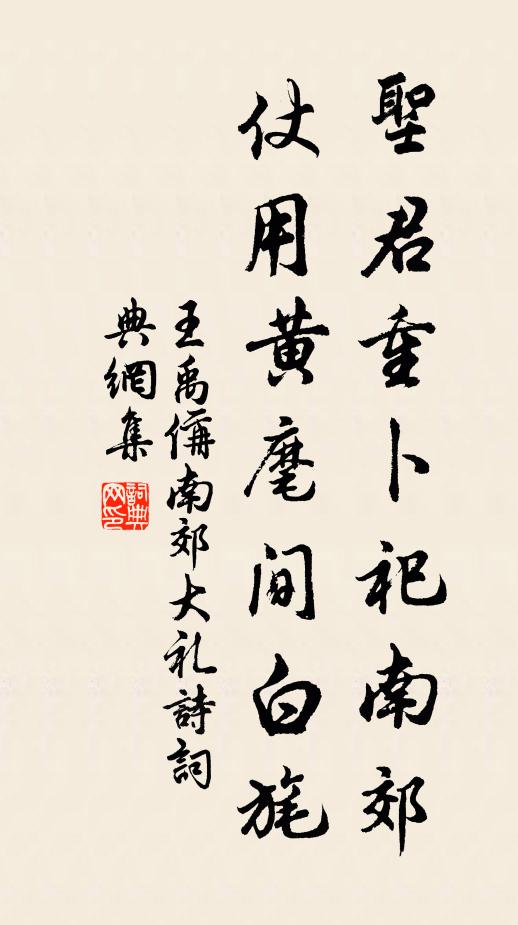 聖君重卜祀南郊
仗用黄麾間白旄
王禹偁南郊大礼詩詞
典網集
詞典
网印